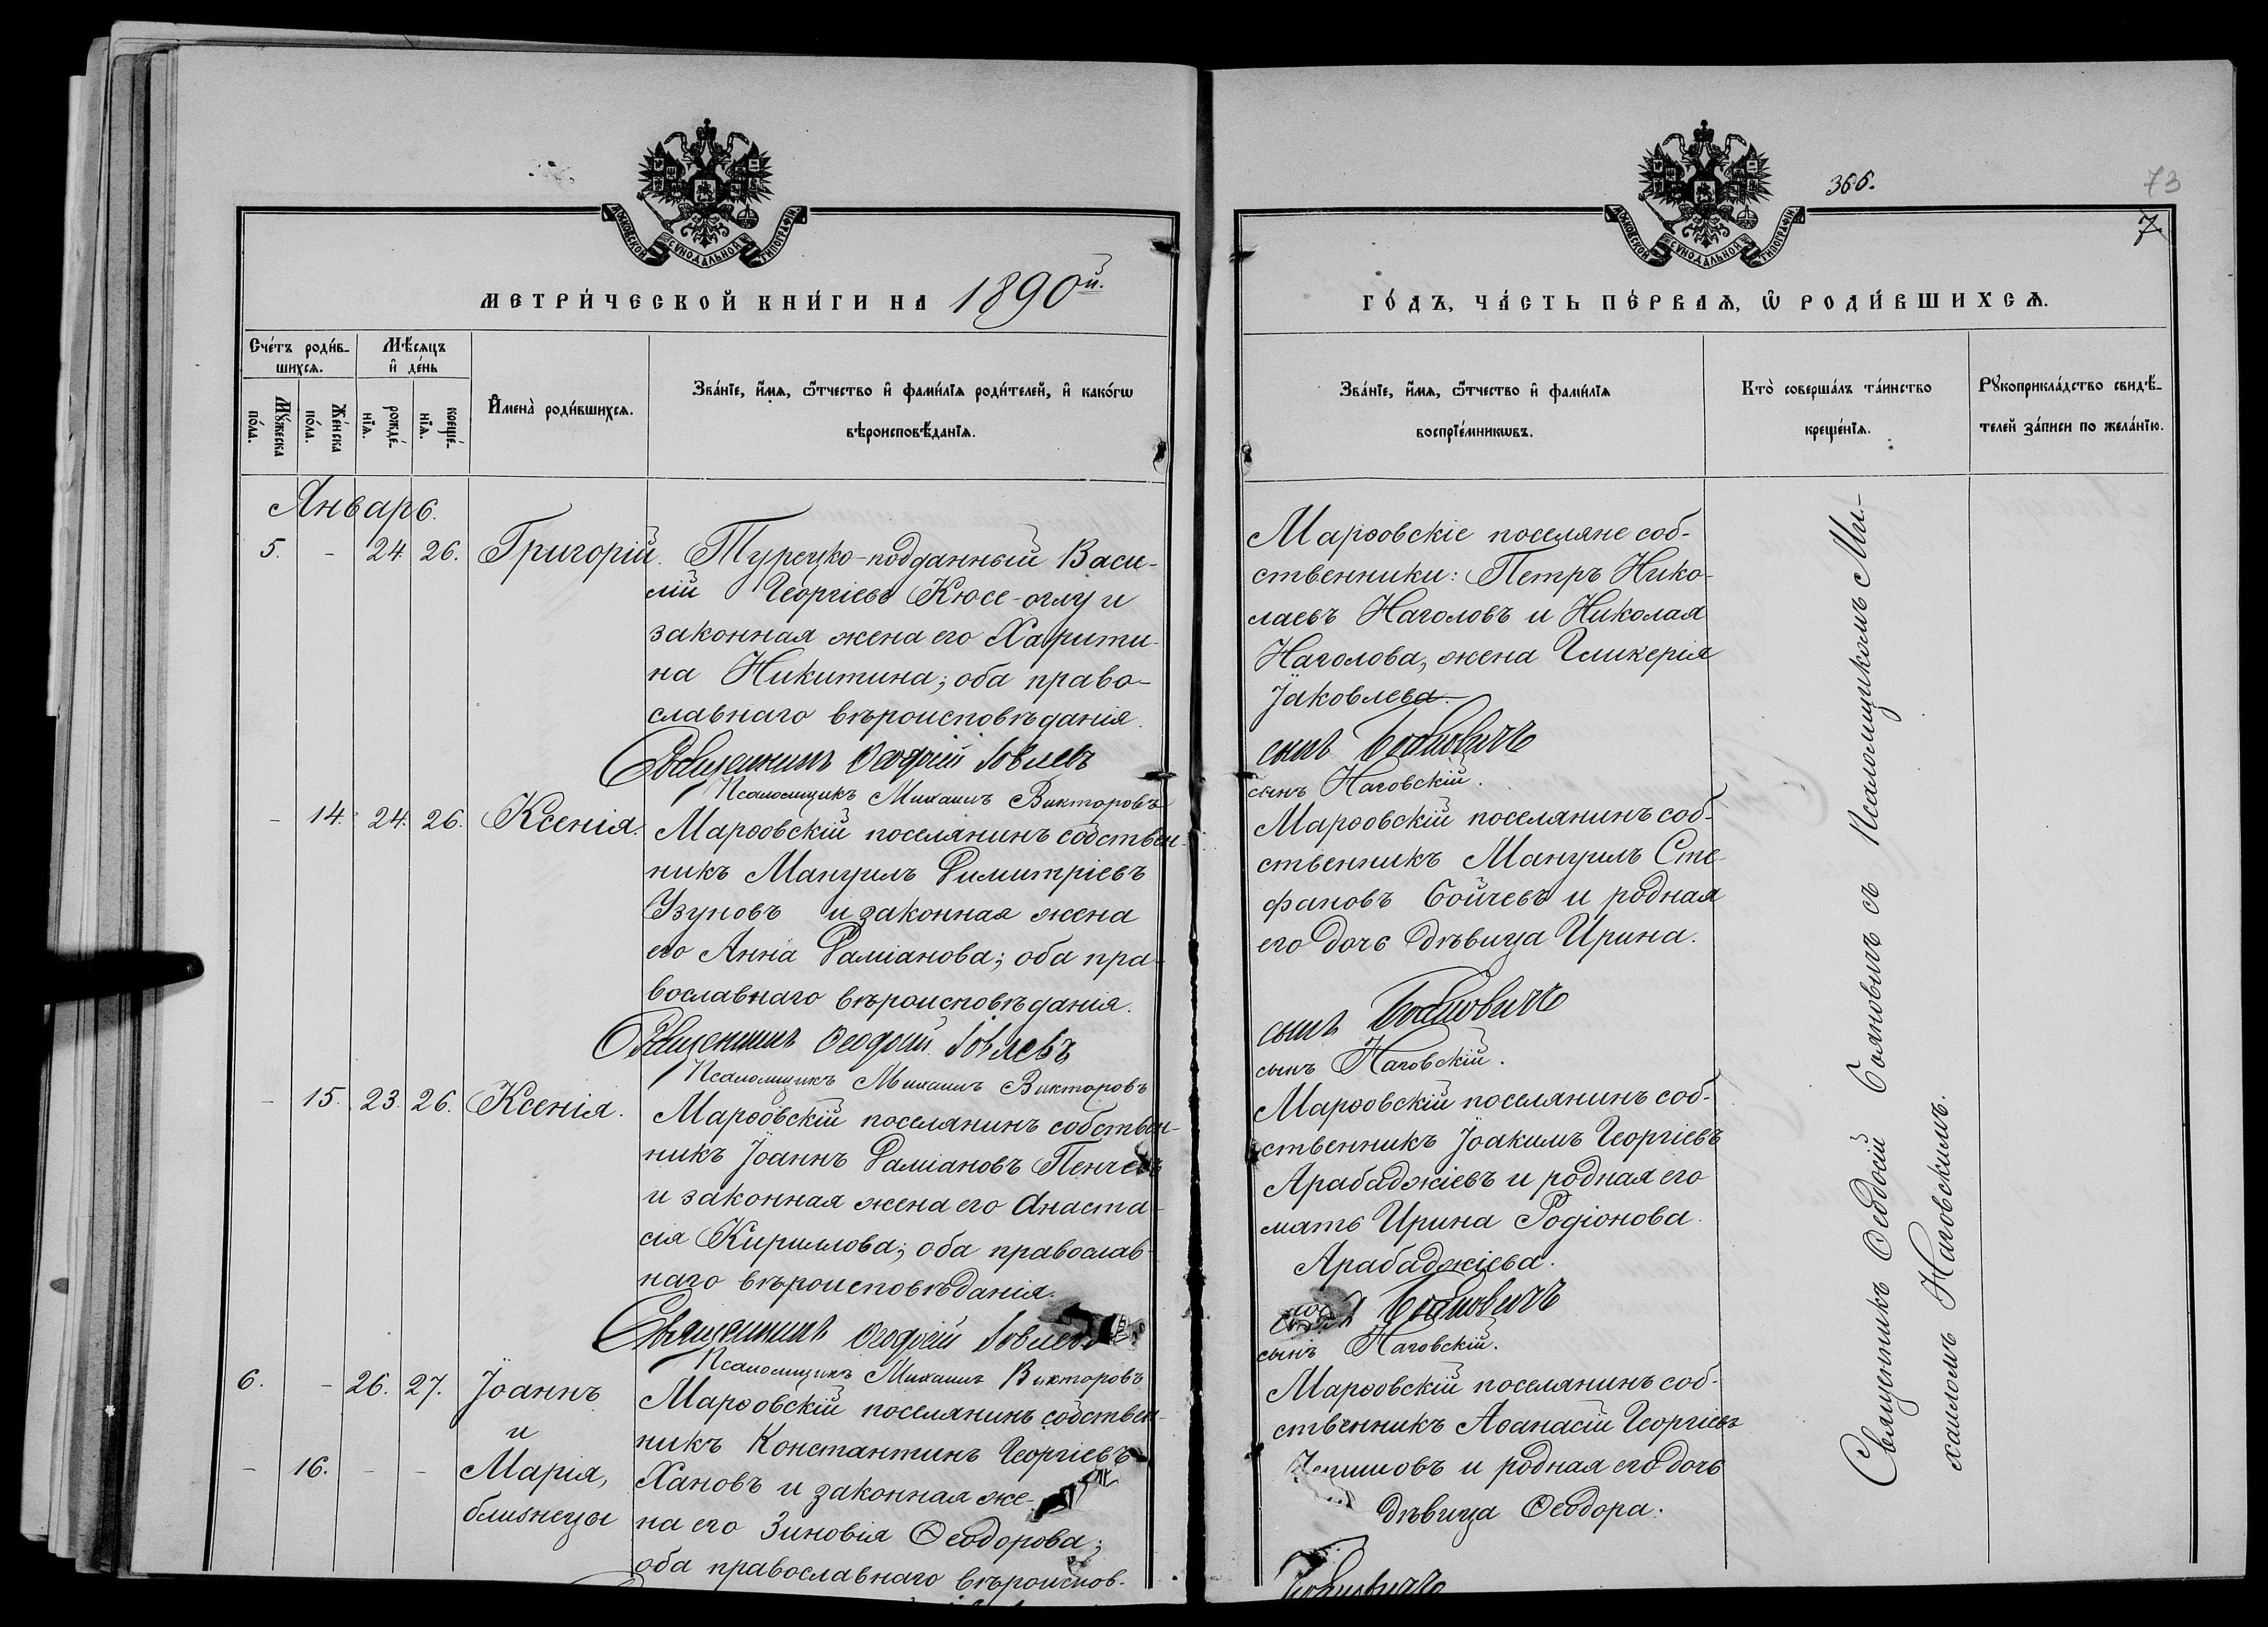 МОСКОВСКОЙ СѴНОДАЛЬНОЙ ТИПОГРАФІИ
МЕТРИ́ЧЕСКОЙ КНИ́ГИ НА 1890й.
Сче́тъ роди́в-
шихсѧ.
Мꙋ́жеска
по́ла.
Же́нска
по́ла.
Мѣ́сѧцъ
и҆ де́нь
рожде́-
нїѧ.
креще́-
нїѧ.
И҆мена̀ роди́вшихсѧ.
Зва́нїе, и҆́мѧ, ѻ҆́тчество и҆ фами́лїѧ роди́телей, и҆ како́гѡ
вѣроисповѣ́данїѧ.
Январь.
5. - 24. 26. Григорій. Турецко-подданный Васи-
лій Георгіевъ Кюсе-оглу и
законная жена его Харити-
на Никитина; оба право-
славнаго вѣроисповѣданія.
Священникъ Ѳеодосій
Псаломщикъ Михаилъ Викторовъ
- 14. 24. 26. Ксенія. Марѳовскій поселянинъ собствен-
никъ Мануилъ Димитріевъ
Узуновъ и законная жена
его Анна Даміанова; оба пра-
вославнаго вѣроисповѣданія.
Священникъ Ѳеодосій
Псаломщикъ Михаилъ Викторовъ
- 15. 23. 26. Ксенія. Марѳовскій поселянинъ собствен-
никъ Іоаннъ Даміановъ Пенчевъ
и законная жена его Анаста-
сія Кириллова; оба православ-
наго вѣроисповѣданія.
Священникъ Ѳеодосій
Псаломщикъ Михаилъ Викторовъ
6. - 26. 27. Іоаннъ Марѳовскій поселянинъ собствен-
и никъ Константинъ Георгіевъ
- 16. - - Марія, Хановъ и законная же-
близнецы на его Зиновія Ѳеодорова;
оба православнаго вѣроиспов.
366.
73
7
МОСКОВСКОЙ СѴНОДАЛЬНОЙ ТИПОГРАФІИ
ГО́ДЪ, ЧА́СТЬ ПЕ́РВАѦ, Ѽ РОДИ́ВШИХСѦ.
Зва́нїе, и҆́мѧ, ѻ҆́тчество и҆ фами́лїѧ
воспрїе́мникѡвъ.
Кто̀ соверша́лъ та́инство
креще́нїѧ.
Рꙋкоприкла́дство свидѣ́-
телей за́писи по жела́нїю.
Марѳовскіе поселяне соб-
ственники: Петръ Нико-
лаевъ Наголовъ и Николая
Наголова, жена Гликерія
Іаковлева.
сынъ
сынъ Наговскій.
Марѳовскій поселянинъ соб-
ственникъ Мануилъ Сте-
фановъ Бойчевъ и родная
его дочь дѣвица Ирина.
сынъ
сынъ Наговскій.
Марѳовскій поселянинъ соб-
ственникъ Іоакимъ Георгіевъ
Арабаджіевъ и родная его
мать Ирина Родіонова
Арабаджіева.
сынъ Наговскій.
Марѳовскій поселянинъ соб-
ственникъ Аѳанасій Георгіевъ
и родная его дочь
дѣвица Ѳеодора.
Священникъ Ѳеодосій съ Псаломщикомъ Ми-
хаиломъ Наговскимъ.